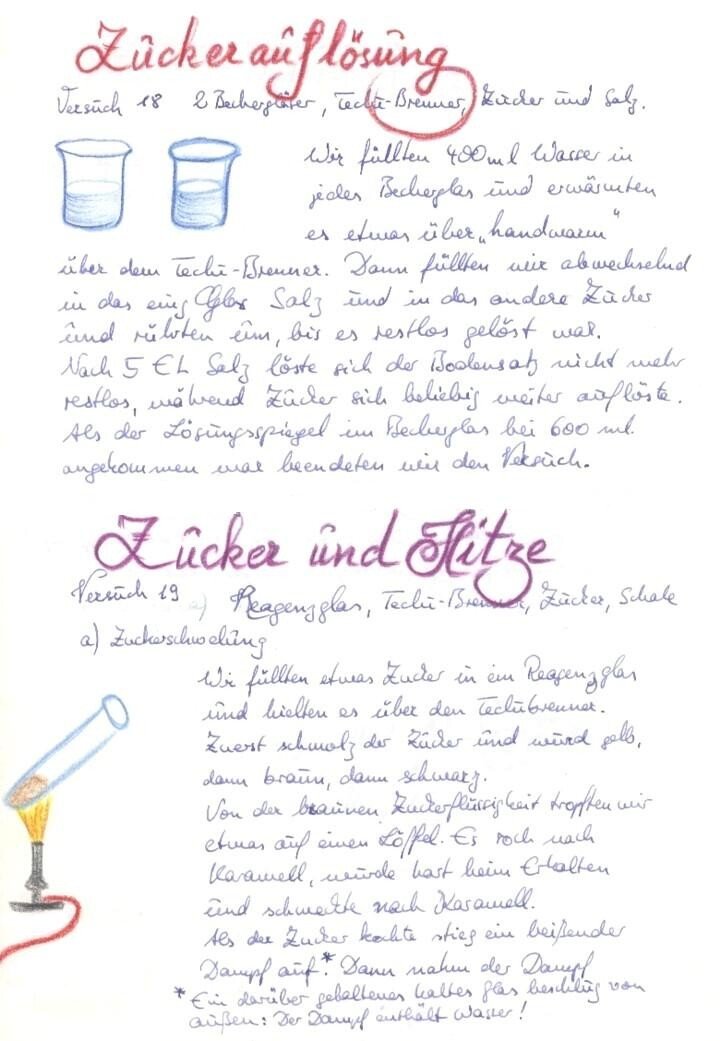 Zuckerauflösung
Versuch 18 2 Bechergläser, Teclu-Brenner, Zucker und Salz.
Wir füllten 400 ml Wasser in
jedes Becherglas und erwärmten
es etwas über „handwarm"
über dem Teclu-Brenner. Dann füllten wir abwechselnd
in das eine Glas Salz und in das andere Zucker
und rührten um, bis es restlos gelöst war.
Nach 5 EL Salz löste sich der Bodensatz nicht mehr
restlos, während Zucker sich beliebig weiter auflöste.
Als der Lösungsspiegel im Becherglas bei 600 ml
angekommen war beendeten wir den Versuch.
Zucker und Hitze
Versuch 19 a) Reagenzglas, Teclu-Brenner, Zucker, Schale
a) Zuckerschwelung
Wir füllten etwas Zucker in ein Reagenzglas
und hielten es über den Teclubrenner.
Zuerst schmolz der Zucker und wurd gelb,
dann braun, dann schwarz.
Von der braunen Zuckerflüssigkeit tropften wir
etwas auf einen Löffel. Es roch nach
Karamell, wurde hart beim Erkalten
und schmeckte nach Karamell.
Als der Zucker kochte stieg ein beißender
Dampf auf.* Dann nahm der Dampf
* Ein darüber gehaltenes kaltes Glas beschlug von
außen: Der Dampf enthält Wasser!